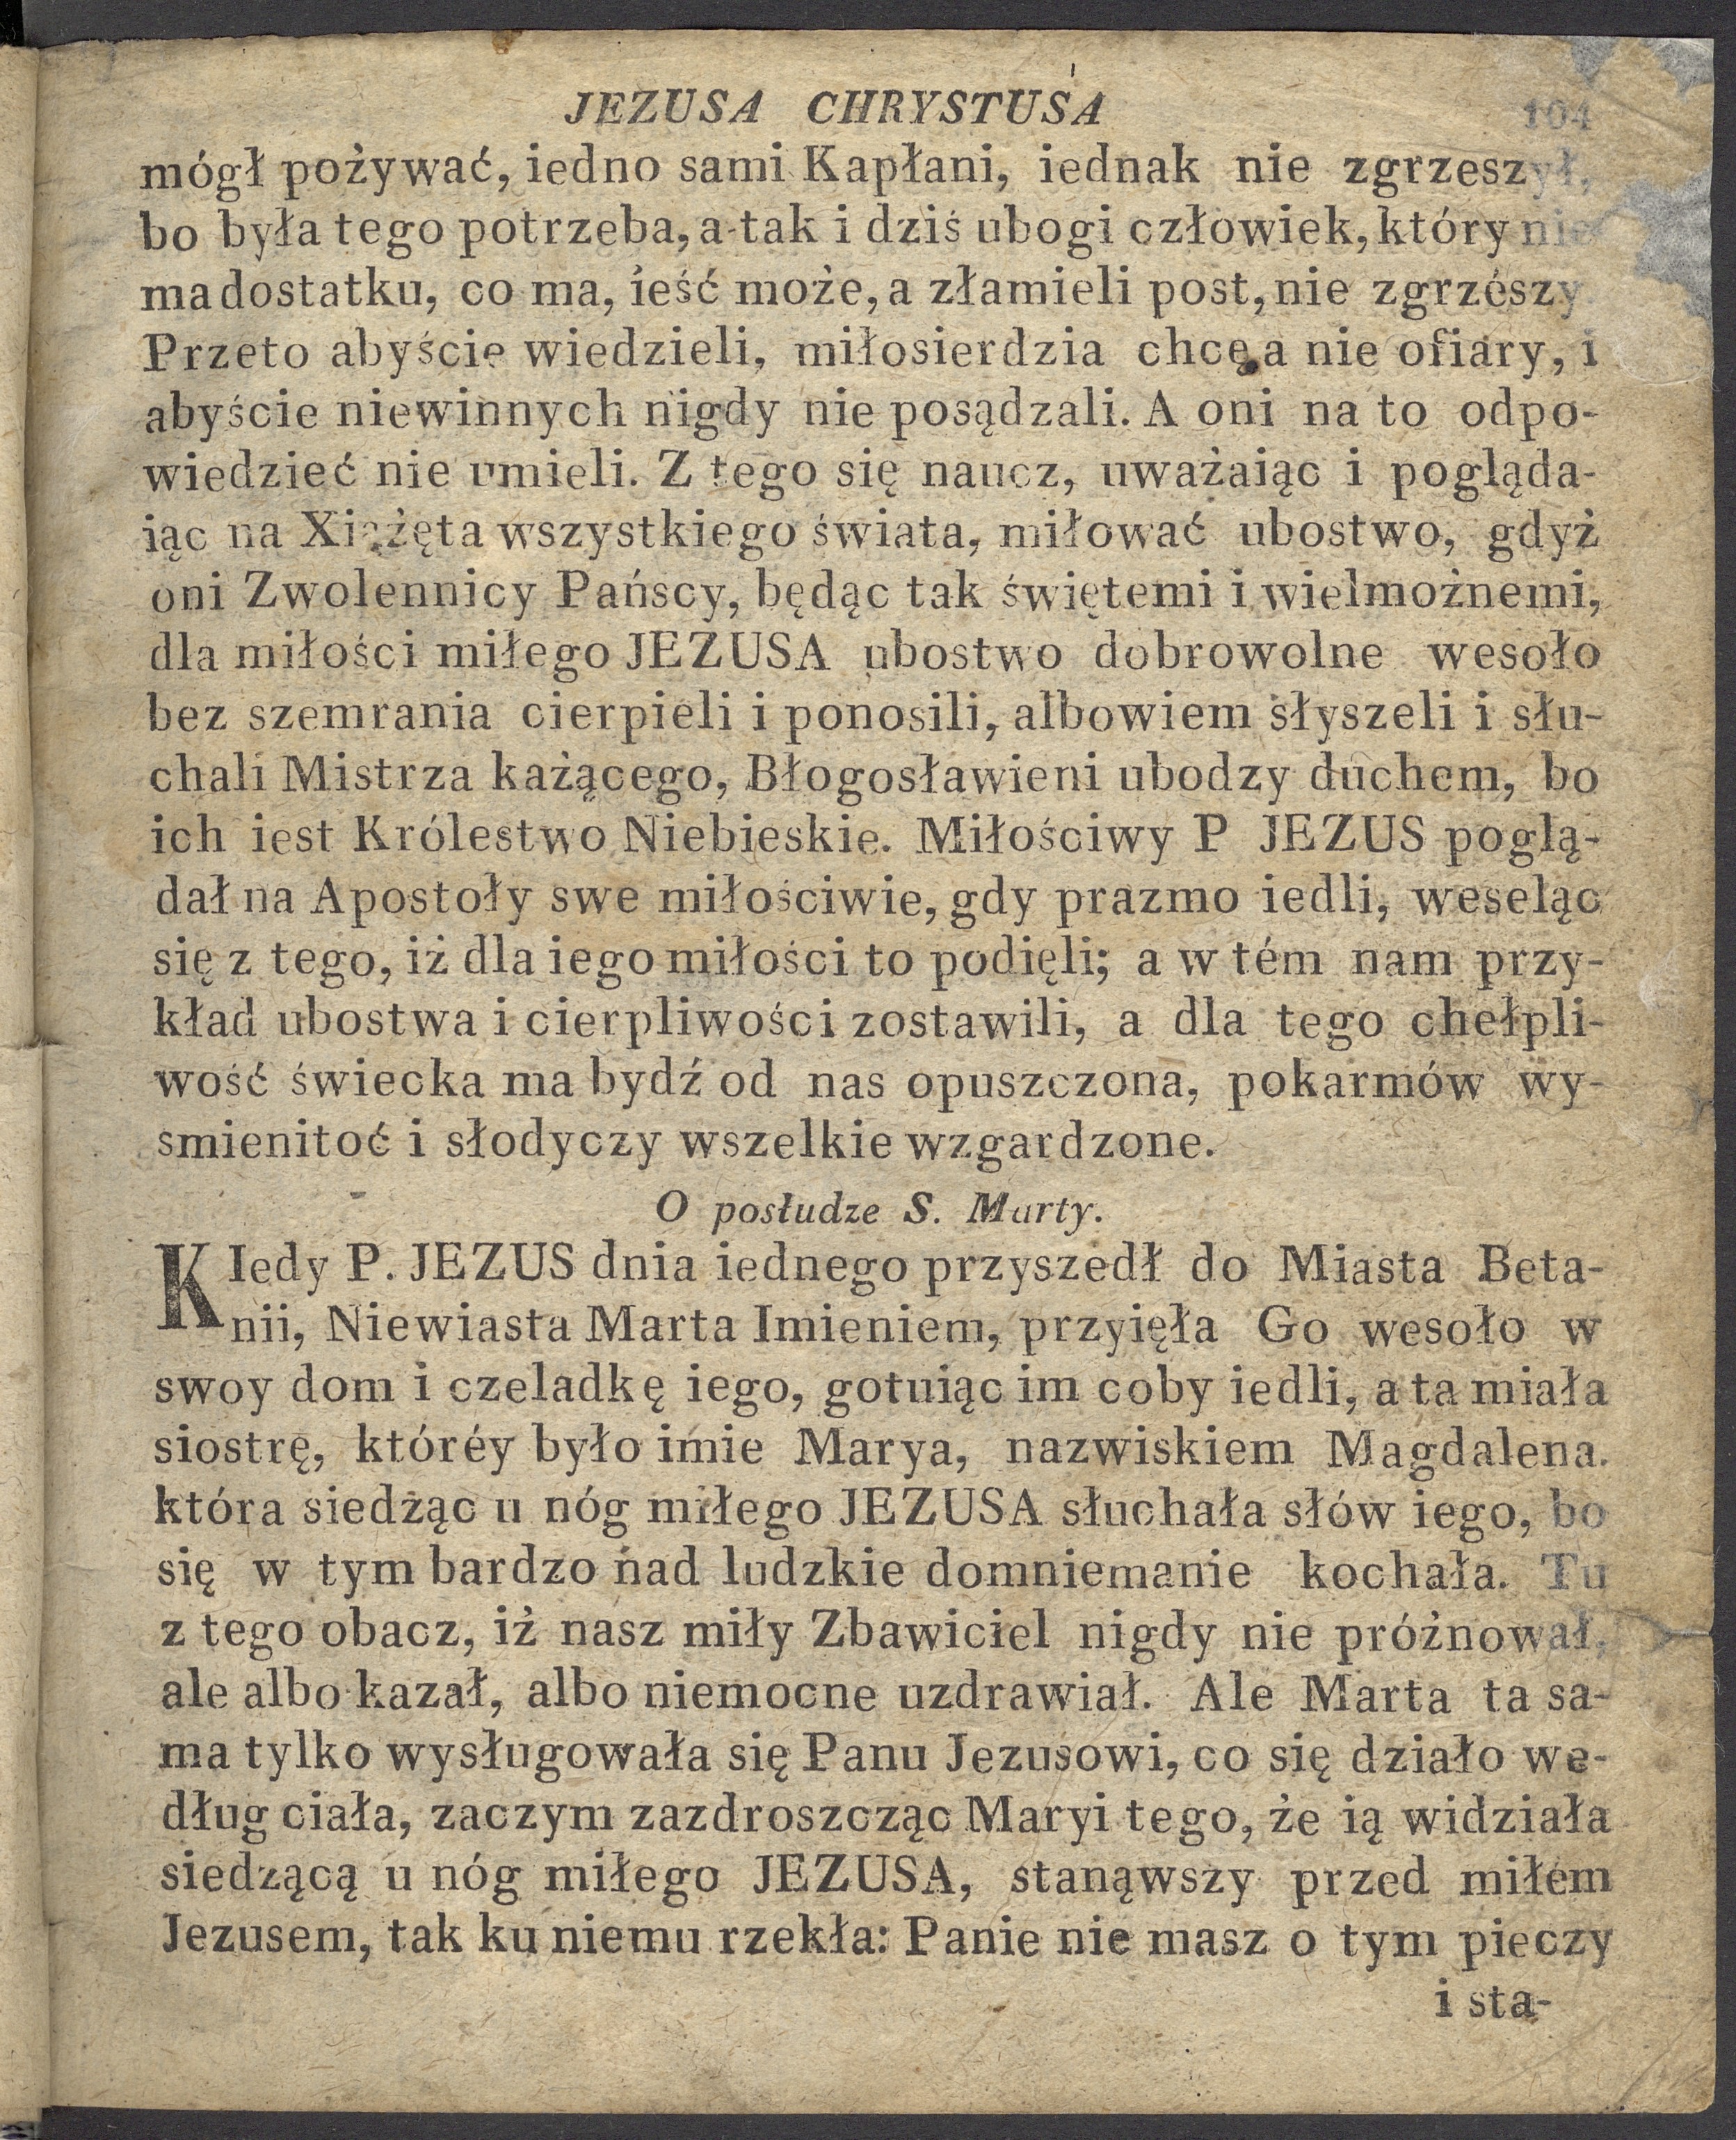 JEZUSA CHRYSTUSA 104
mógł pożywać, iedno sami Kapłani, iednak nie zgrzeszył,
bo była tego potrzeba, a tak i dziś ubogi człowiek, który nie
ma dostatku, co ma, ieść może, a złamieli post, nie zgrzészy
Przeto abyście wiedzieli, miłosierdzia chcę, a nie ofiary, i
abyście niewinnych nigdy nie posądzali. A oni na to odpo-
wiedzieć nie umieli. Z tego się naucz, uważaiąc i pogląda-
iąc na Xiążęta wszystkiego świata, miłować ubostwo, gdyż
oni Zwolennicy Pańscy, będąc tak świętemi i wielmożnemi,
dla miłości miłego JEZUSA ubostwo dobrowolne wesoło
bez szemrania cierpieli i ponosili, albowiem słyszeli i słu-
chali Mistrza każącego, Błogosławieni ubodzy duchem, bo
ich iest Królestwo Niebieskie. Miłościwy P JEZUS poglą-
dał na Apostoły swe miłościwie, gdy prazmo iedli, weseląc
się z tego, iż dla iego miłości to podięli; a w tém nam przy-
kład ubostwa i cierpliwości zostawili, a dla tego chełpli-
wość świecka ma bydź od nas opuszczona, pokarmów wy-
smienitoć i słodyczy wszelkie wzgardzone.
O posłudze S. Marty.
KIedy P. JEZUS dnia iednego przyszedł do Miasta Beta-
nii, Niewiasta Marta Imieniem, przyięła Go wesoło w
swoy dom i czeladkę iego, gotuiąc im coby iedli, a ta miała
siostrę, któréy było imie Marya, nazwiskiem Magdalena.
która siedżąc u nóg miłego JEZUSA słuchała słów iego, bo
się w tym bardzo nad ludzkie domniemanie kochała. Tu
z tego obacz, iż nasz miły Zbawiciel nigdy nie próżnował,
ale albo kazał, albo niemocne uzdrawiał. Ale Marta ta sa-
ma tylko wysługowała się Panu Jezusowi, co się działo we-
dług ciała, zaczym zazdroszcząc Maryi tego, że ią widziała
siedzącą u nóg miłego JEZUSA, stanąwszy przed miłém
Jezusem, tak ku niemu rzekła: Panie nie masz o tym pieczy
i sta-